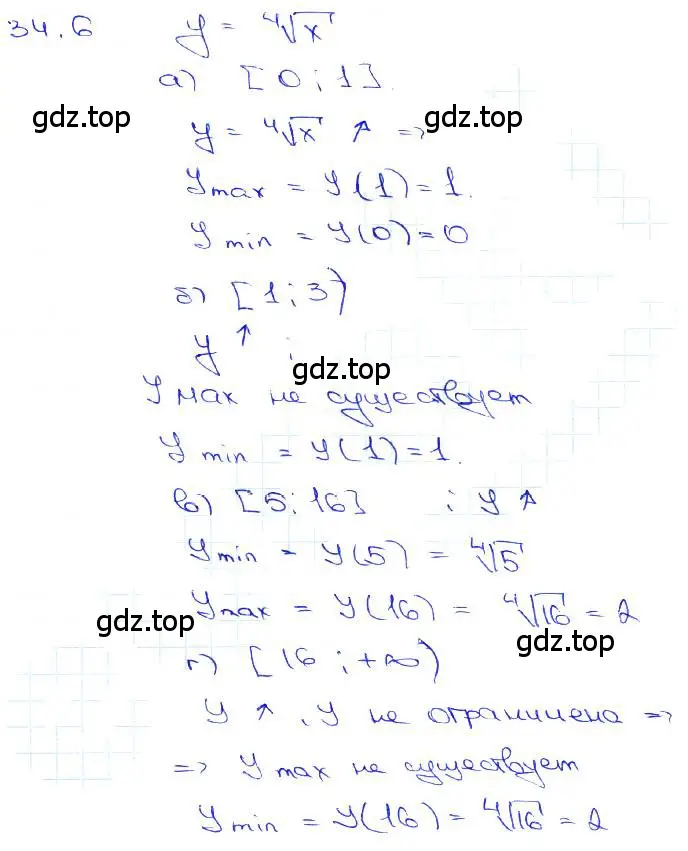 34.6 y = ⁴√x
а) [0; 1].
gdz.top
y = ⁴√x ↑ =>
gdz.top
y max = y(1) = 1.
y min = y(0) = 0
б) [1; 3)
y ↑ ;
gdz.top
y мах не существует
y min = y(1) = 1.
в) [5; 16] ; y ↑
y min = y(5) = ⁴√5
y max = y(16) = ⁴√16 = 2
gdz.top
gdz.top
г) [16; +∞)
y ↑, y не ограничена =>
=> y max не существует
y min = y(16) = ⁴√16 = 2